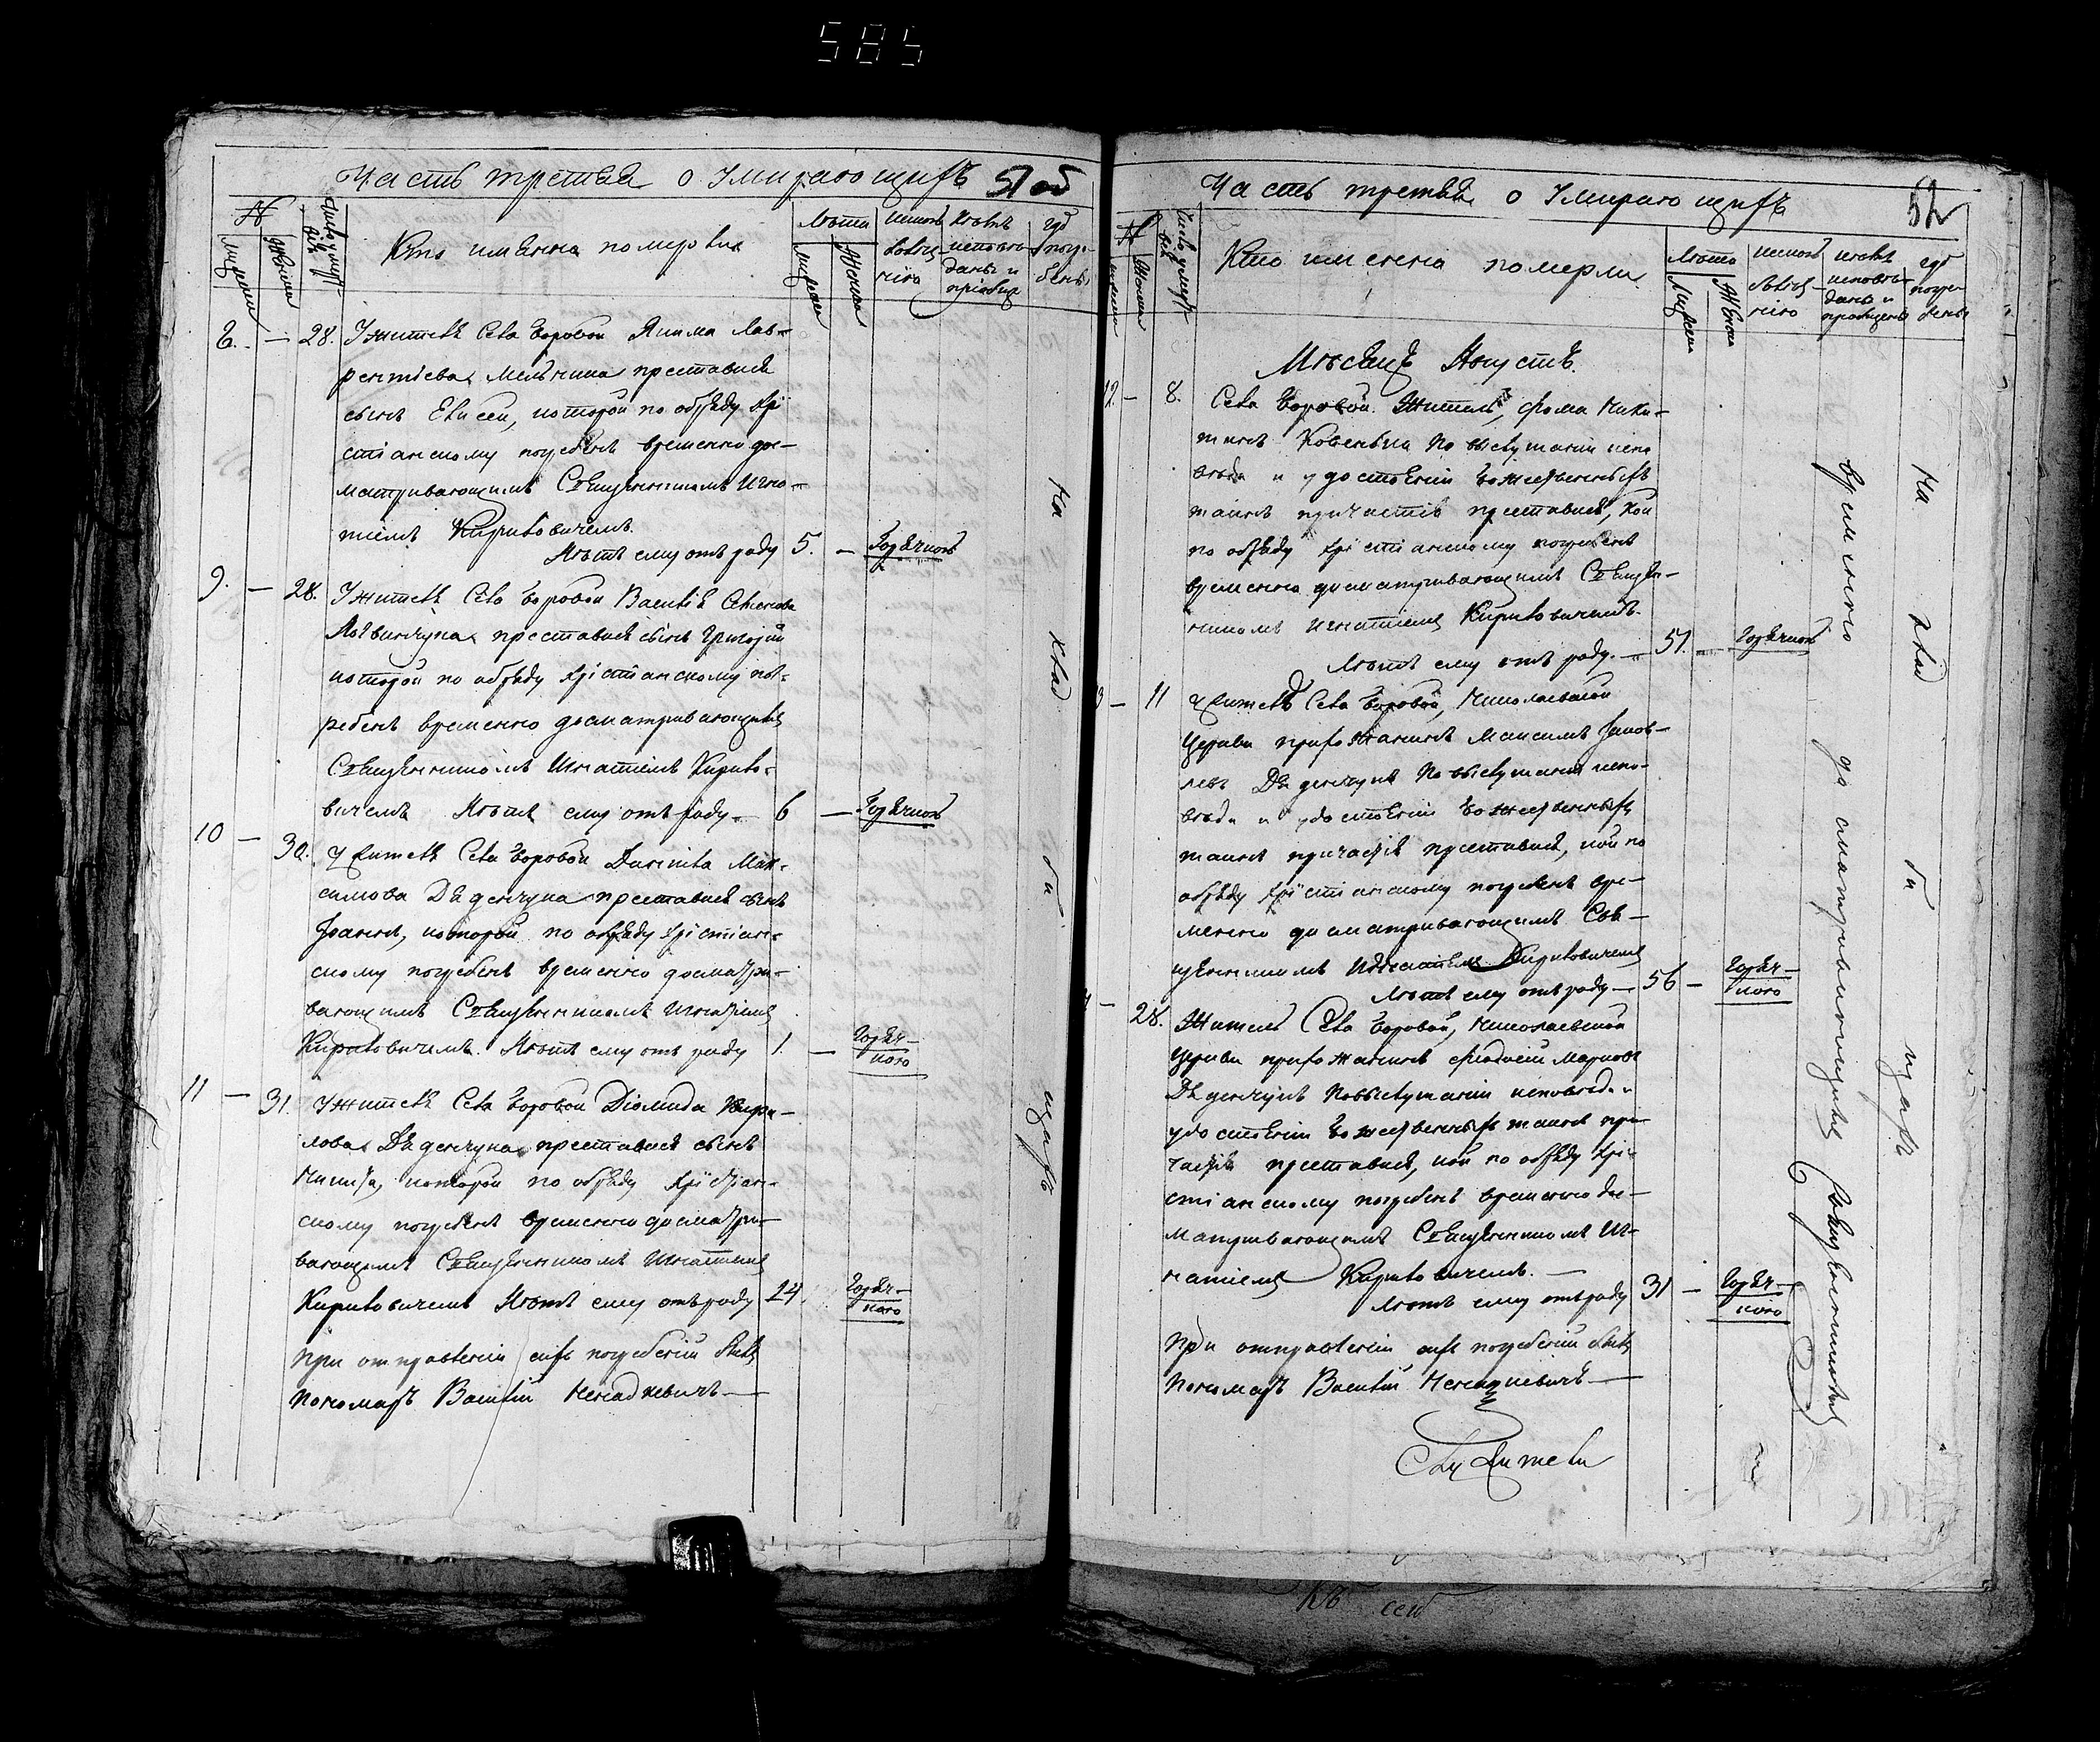 585
Часть третяя о Умирающихъ 51 об
№
Мужеска
Женска
Число умер-
Кто имянно померлих
Лѣта
Мужеска
Женска
какою
болѣз
нію
Кѣмъ
исповѣ
даны и
пріобщ
гдѣ
погре-
бены
8. — 28. У жителя Села Боровой Якима Лав-
рентіева Мельника преставися
сынъ Елисей, которой по обряду хрі
стіанскому погребенъ временно дос-
матривающимъ Священникомъ Игна-
тіемъ Кириловичемъ.
Лѣтъ ему отъ роду 5. — Горячкою
9. — 28. У жителя Села Боровой Василія Семенова
преставися сынъ Григорій
которой по обряду хрістіанскому пог-
ребенъ временно досматривающимъ
Священникомъ Игнатіемъ Кирило-
вичемъ Лѣтъ ему отъ роду 6 — Горячкою
10 — 30. У жителя Села Боровой Даниила Мак-
симова Дяденчука преставися сынъ
Іоаннъ, которой по обряду хрістіан-
скому погребенъ временно досматри-
вающимъ Священникомъ Игнатіемъ
Кириловичемъ. Лѣтъ ему отъ роду 1. — Горяч-
кою
11 — 31. У жителя Села Боровой Діомида Кири-
лова Дяденчука преставися сынъ
Никита, которой по обряду хрістіан-
скому погребенъ временно досматри-
вающимъ Священникомъ Игнатіемъ
Кириловичемъ Лѣтъ ему отъ роду 24. Горяч-
кою
при отправленіи сихъ погребеній былъ
пономаръ Василій Ненадкевичъ —
На клад би щахъ
Часть третяя о Умирающихъ 52
№
Число умер-
Кто именно померли
Лѣта
Мужеска
Женска
какою
болѣз-
нію
кѣмъ
исповѣ-
даны и
пріобщены
гдѣ
погре-
бены
Мѣсяцъ Августъ.
12 — 8. Села Боровой Житель, Фома Ники-
тинъ по выслушаніи испо
вѣди и удостоеніи Божественныхъ
таинъ причастія преставися, кой
по обряду хрістіанскому погребенъ
временно досматривающимъ Священ-
никомъ Игнатіемъ Кириловичемъ.
Лѣтъ ему отъ роду. — 51. — Горячкою
— 11 Житель Села Боровой, Николаевской
Церкви прихожанинъ Максимъ Яков-
левъ Дяденчукъ по выслушаніи испо-
вѣди и удостоеніи Божественныхъ
таинъ причастія преставися, кой по
обряду хрістіанскому погребенъ вре-
менно досматривающимъ Свя-
щенникомъ Игнатіемъ Кириловичемъ
Лѣтъ ему отъ роду — 56 — Горяч-
кою
— 28. Житель Села Боровой, Николаевской
Церкви прихожанинъ Марковъ
Дяденчукъ по выслушаніи исповѣди и
удостоеніи Божественныхъ таинъ при-
частія преставися, кой по обряду хрі-
стіанскому погребенъ временно дос-
матривающимъ Священникомъ Иг-
натіемъ Кириловичемъ. —
Лѣтъ ему отъ роду 31 — Горяч-
кою
При отправленіи сихъ погребеній былъ
пономаръ Василій Ненадкевичъ —
Временно досматривающимъ Священникомъ
На клад би щахъ